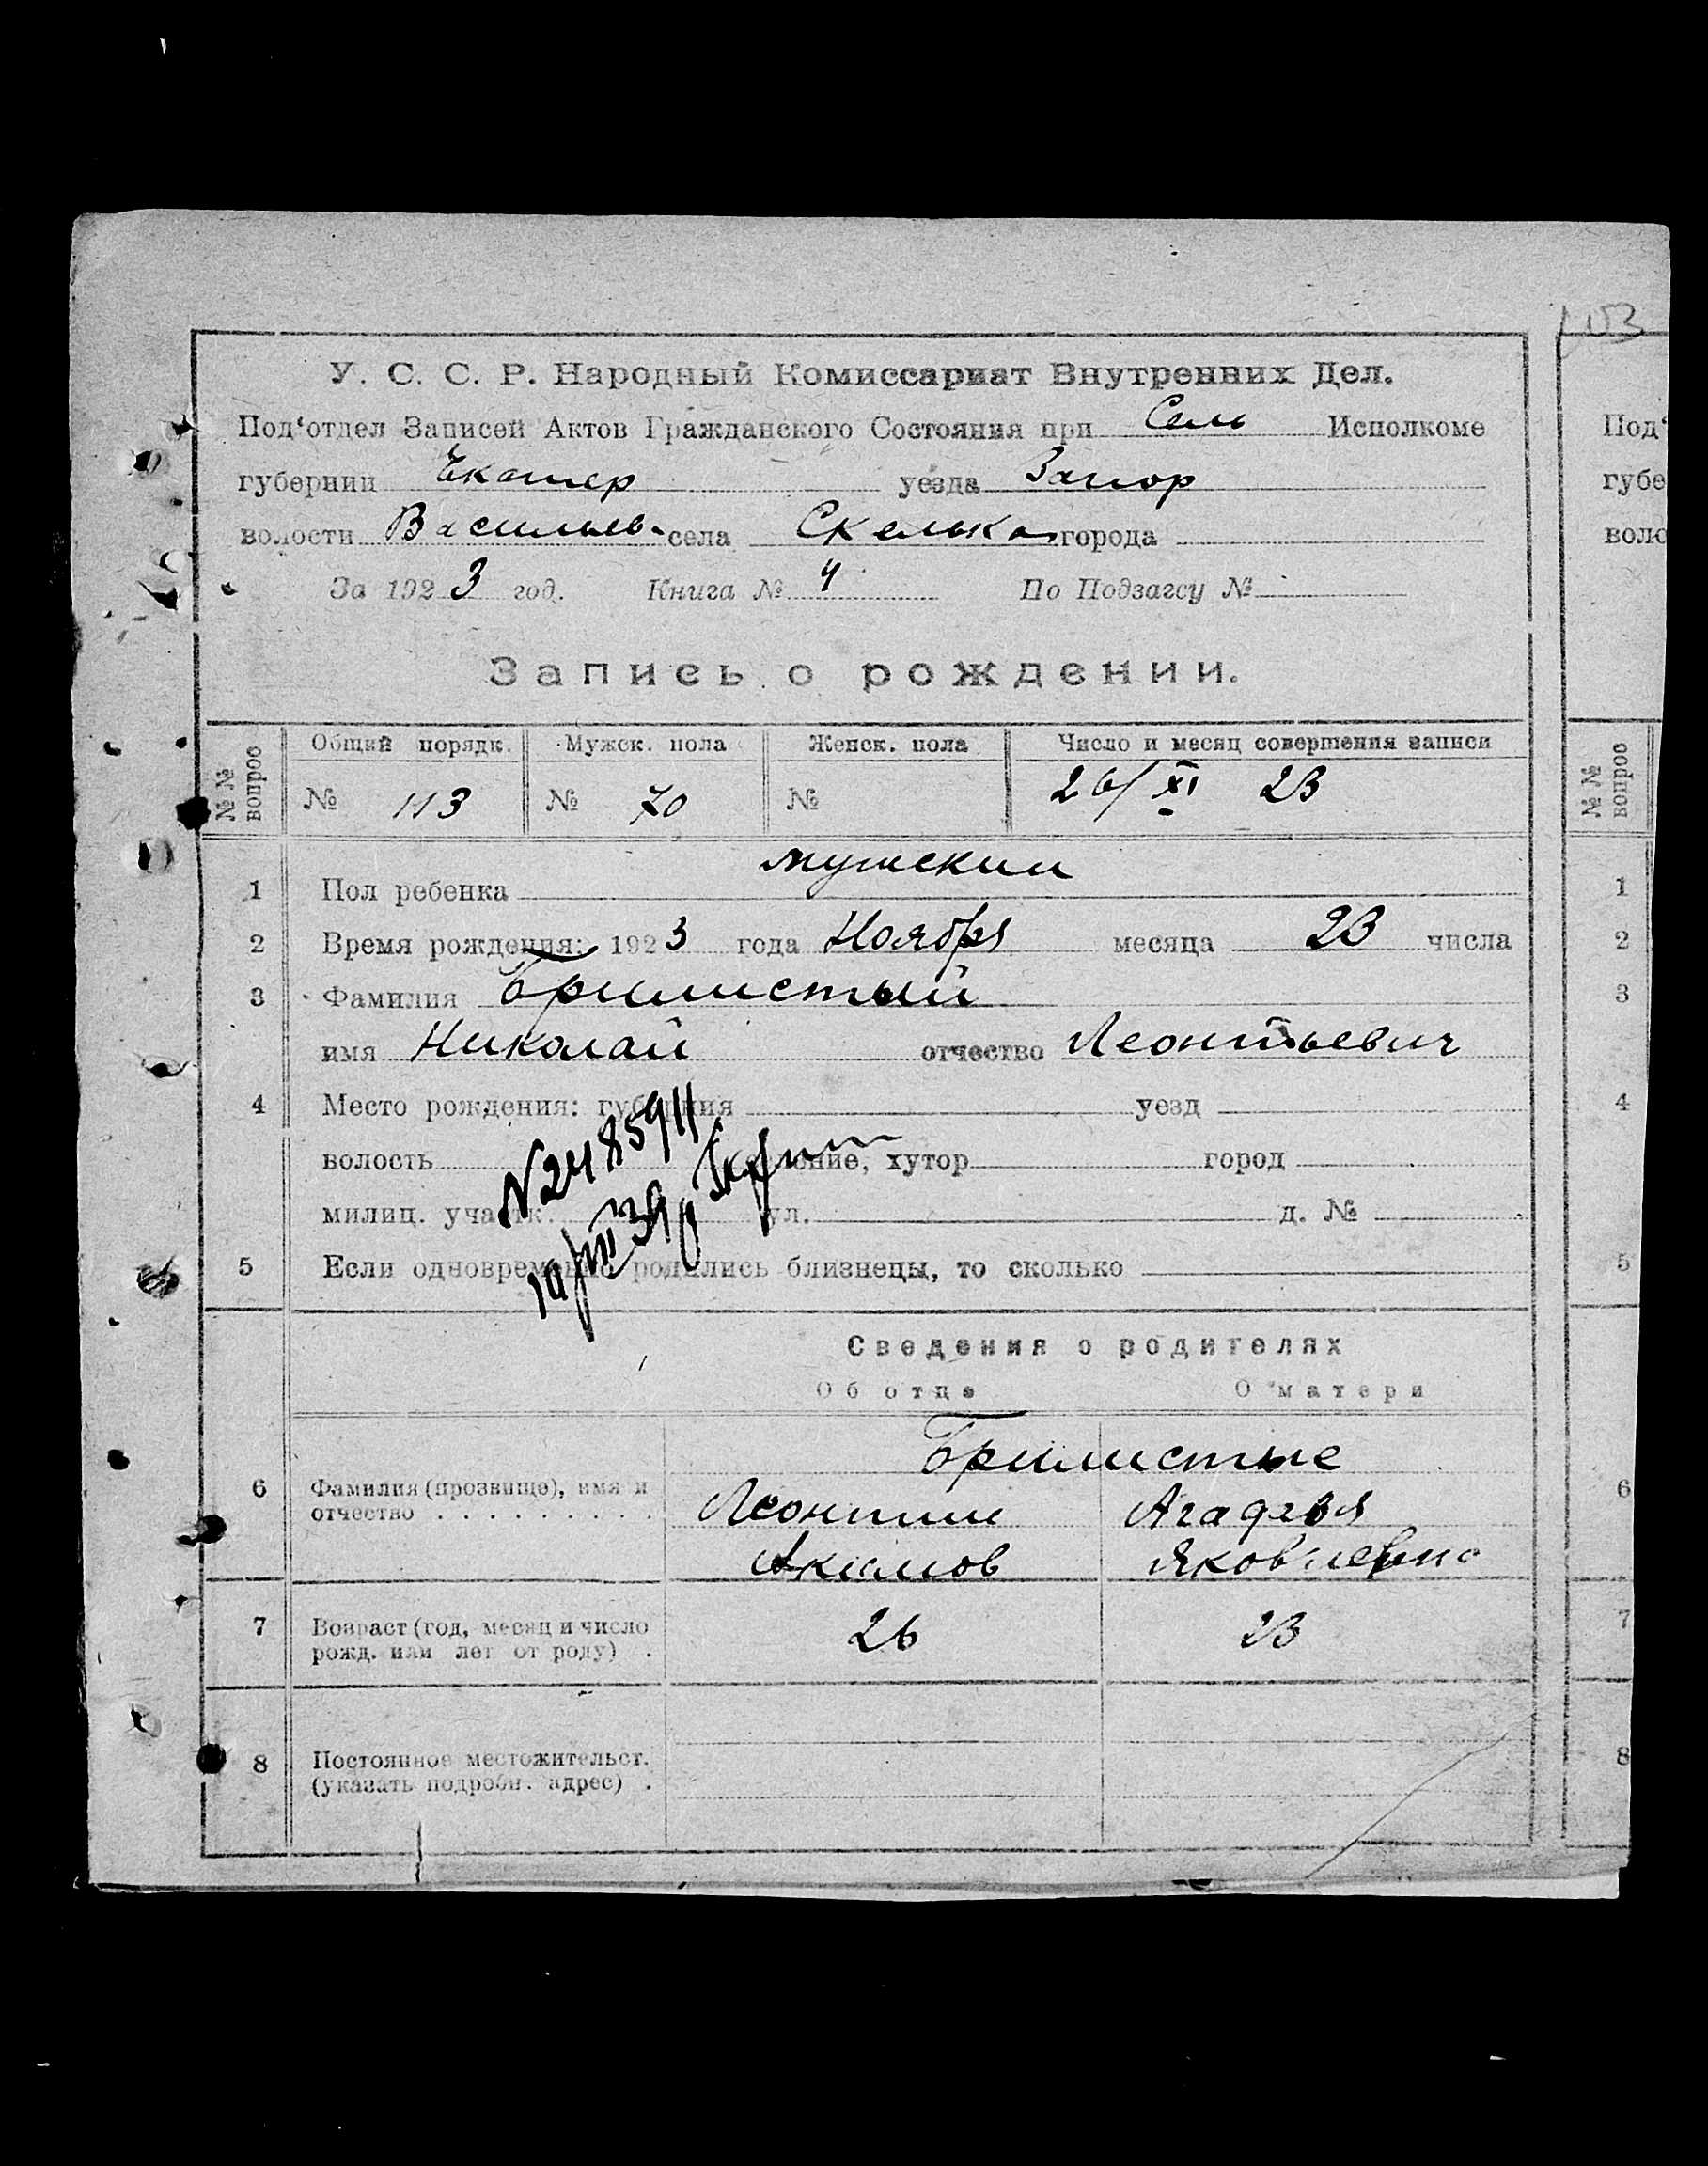 153
У. С. С. Р. Народный Комиссариат Внутренних Дел.
Под‘отдел Записей Актов Гражданского Состояния при Сель Исполкоме
губернии Екатер уезда Запор
волости Васильев- села Скелька города
За 1923 год. Книга № 4 По Подзагсу №
Запись о рождении.
№ № вопрос
Общий порядк. Мужск. пола Женск. пола Число и месяц совершения записи
№ 113 № 70 № 26/XI 23
1 Пол ребенка мужский
2 Время рождения: 1923 года Ноября месяца 23 числа
3 Фамилия Брилистый
имя Николай отчество Леонтьевич
4 Место рождения: губерния уезд
волость селение, хутор город
милиц. участк. ул. д. №
5 Если одновременно родились близнецы, то сколько
N2485911
19/VIII 39 г
Сведения о родителях
Об отце О матери
Брилистые
6 Фамилия (прозвище), имя и Леонтий Агафья
отчество . . . . . . . . . Акимов Яковлевна
7 Возраст (год, месяц и число 26 23
рожд. или лет от роду) .
8 Постоянное местожительст.
(указать подробн. адрес) .
Под‘
губе
воло
№ № вопрос
1
2
3
4
5
6
7
8